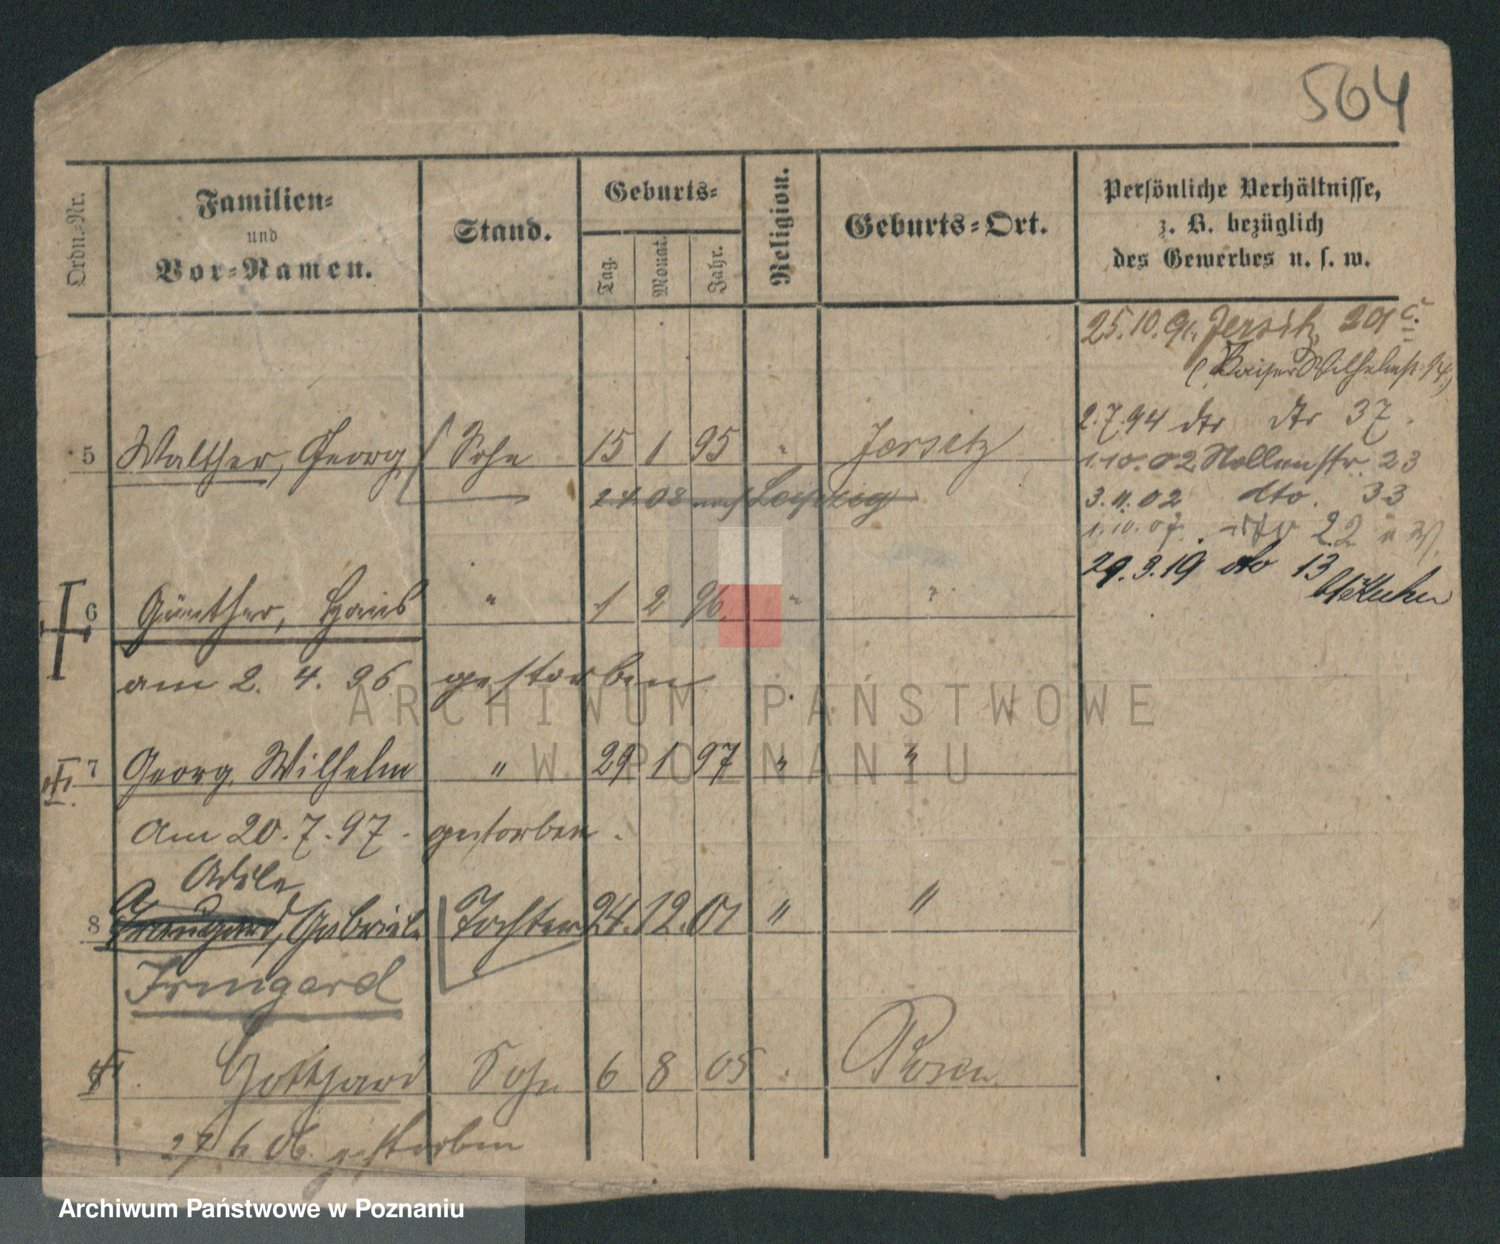 564
Ordn.-Nr.
Familien-
und
Vor-Namen.
Stand.
Geburts-
Tag.
Monat.
Jahr.
Religion.
Geburts-Ort.
Persönliche Verhältnisse,
z. B. bezüglich
des Gewerbes u. s. w.
25.10.91. Jersitz 201 c.
(Kaiser Wilhelmst.
2.7.94 dto dto 37.
5 Walther, Georg Sohn 15 1 95 " Jersitz
1.10.02 Nollenstr. 23
2.4.08 nach Leipzig
3.11.02 dto. 33
1.10.07. dto 22
29.3.19 dto 13
6 Günther, Hans " 1 2 96 " "
am 2. 4. 96 gestorben
7 Georg Wilhelm " 29 1 97 " "
am 20.7.97. gestorben.
Adele
8 Irmgard, Gabriele Tochter 24. 12. 01 " "
Irmgard
Gotthard Sohn 6 8 05 Posen
27 6 06. gestorben
ARCHIWUM PAŃSTWOWE
W POZNANIU
Archiwum Państwowe w Poznaniu